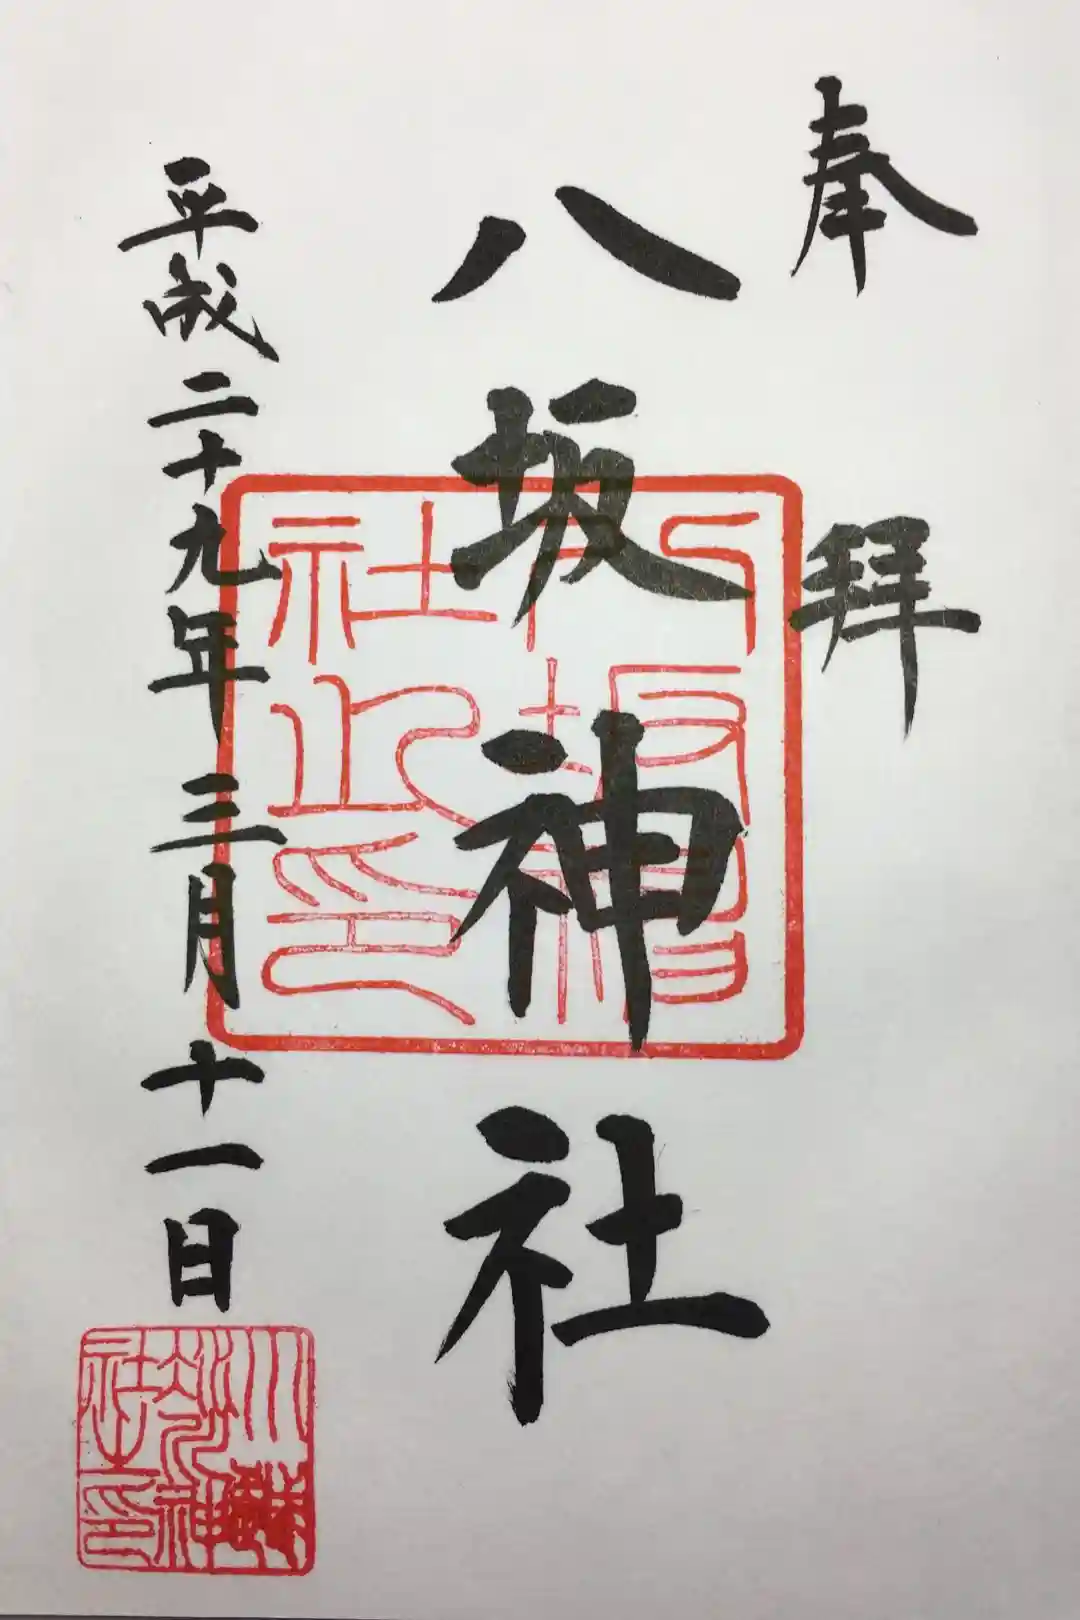 奉拝
八坂神社
八坂神社之印
平成二十九年三月十一日